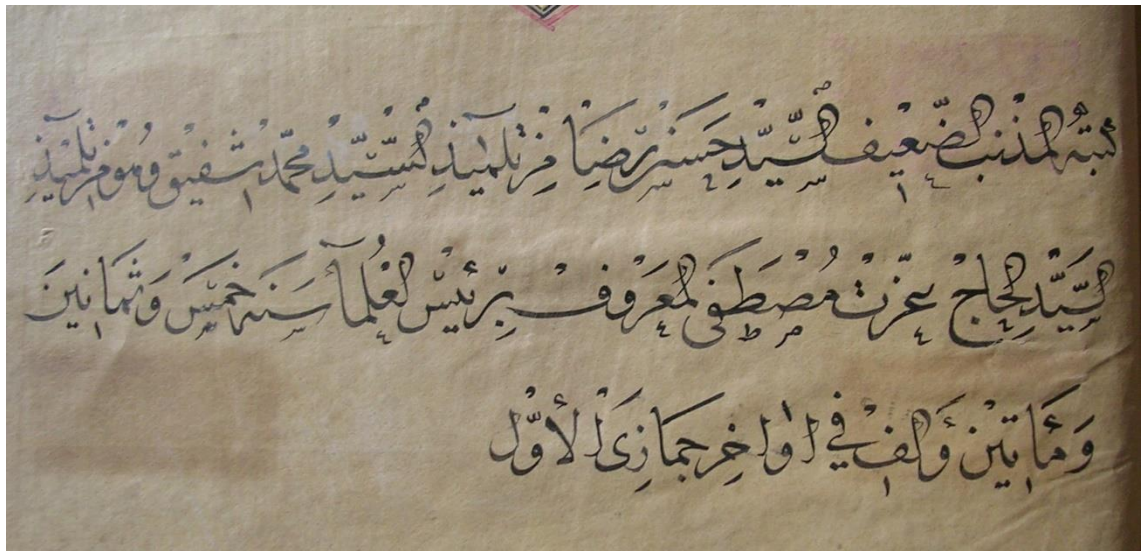 كتبه المذنب الضعيف السيد حسن رضا من تلاميذ السيد محمد شفيق وهو من تلاميذ
السيد الحاج عزت مصطفى المعروف برئيس العلما سنه خمس وثمانين
ومأتين والف في اواخر جمازى الأول